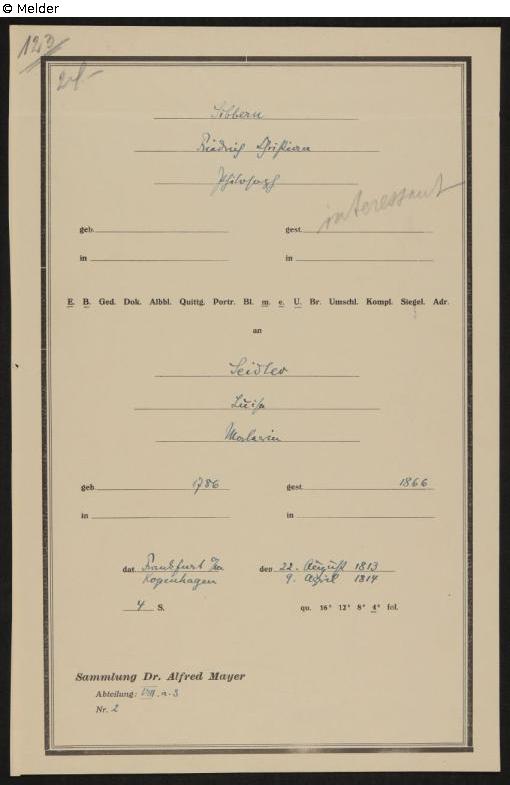 © Melder
123
2.-
Sibbern
Friedrich Christian
Philosoph
interessant
geb. gest.
in in
E. B. Ged. Dok. Albbl. Quittg. Portr. Bl. m. e. U. Br. Umschl. Kompl. Siegel. Adr.
an
Seidler
Luise
Malerin
geb. 1786 gest. 1866
in in
dat. Frankfurt den 22. August 1813
Kopenhagen 9. April 1814
4 S. qu. 16° 12° 8° 4° fol.
Sammlung Dr. Alfred Mayer
Abteilung: VIII. a. 3
Nr. 2